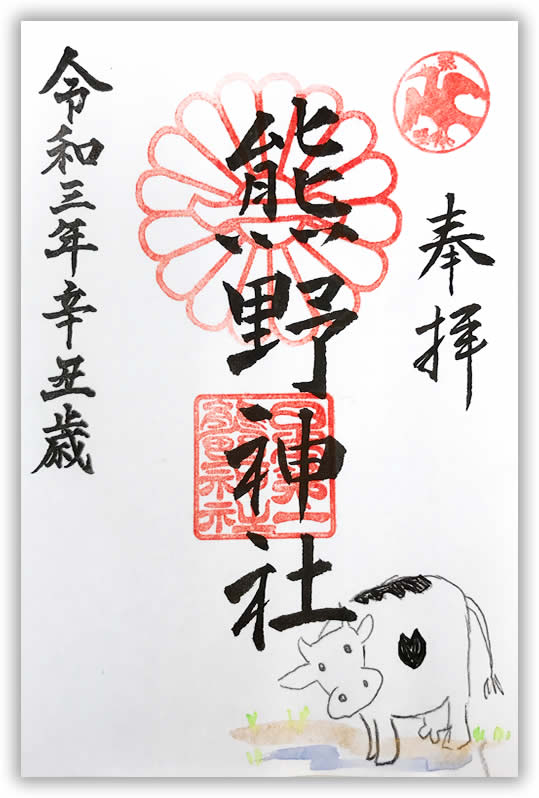 奉拝
熊野神社
令和三年辛丑歳